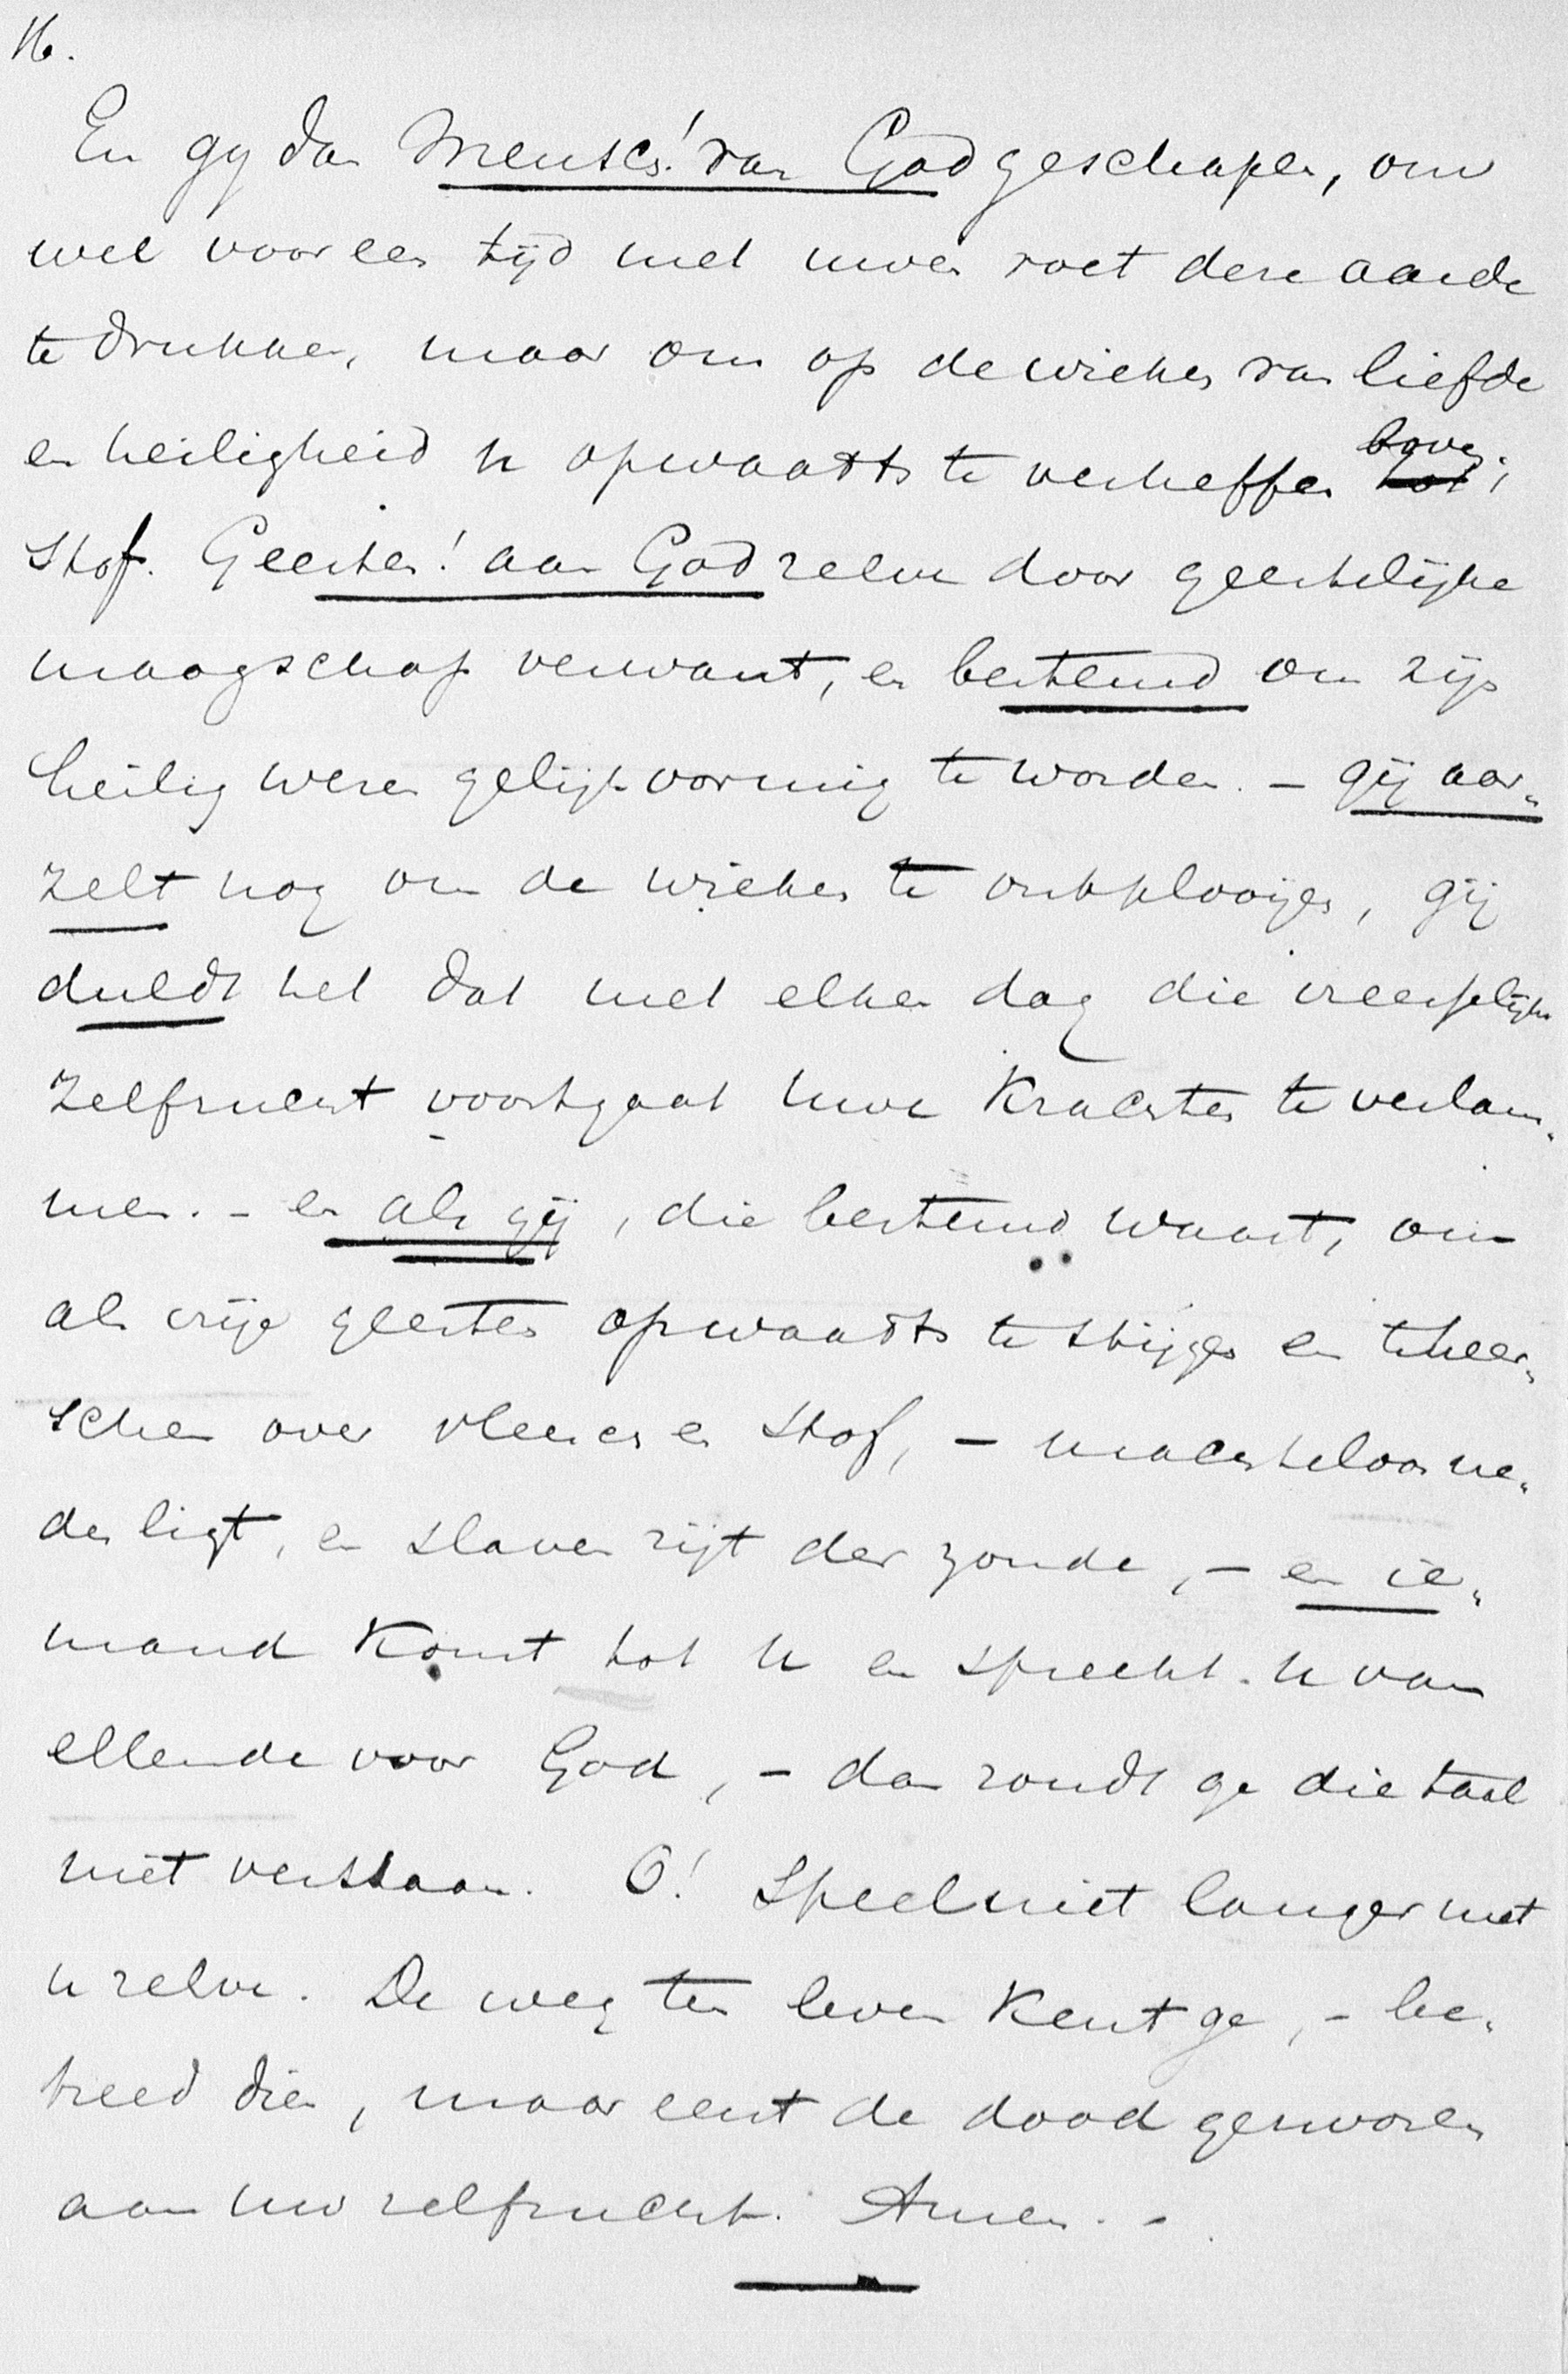 16.
En gy dan Mensch! van God geschapen, om
wel voor een tijd met uwen voet deze aarde
te drukken, maar om op de wieken van liefde
en heiligheid u opwaarts te verheffen boven 't
stof. Geesten! aan God zelven door geestelijke
maagschap verwant, en bestemd om zijn
heilig wezen gelijkvormig te worden. – gij aar„
zelt nog om de wieken te ontplooijen, gij
duldt het dat met elken dag die vreeslijke
zelfzucht voortgaat uwe krachten te verlam„
men. – en als gij, die bestemd waart, om
als vrije geesten opwaarts te stijgen en te heer„
schen over vleesch en stof, – machteloos ne„
der ligt, en slaven zijt der zonde, – en ie„
mand komt tot u en spreekt u van
ellende voor God, – dan zoudt ge die taal
niet verstaan. O! Speel niet langer met
u zelve. De weg ten leven kent ge, – be„
treed dien, maar eerst de dood gezworen
aan uw zelfzucht. Amen. –